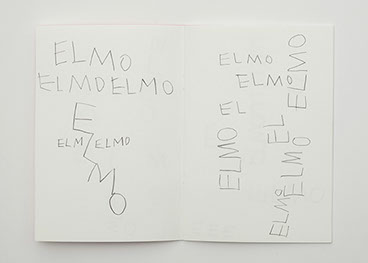 ELMO
ELMOELMO
ELMO
ELM ELMO
ELMO
ELMO
ELMO
EL
ELMO
EL
ELMO
ELMO